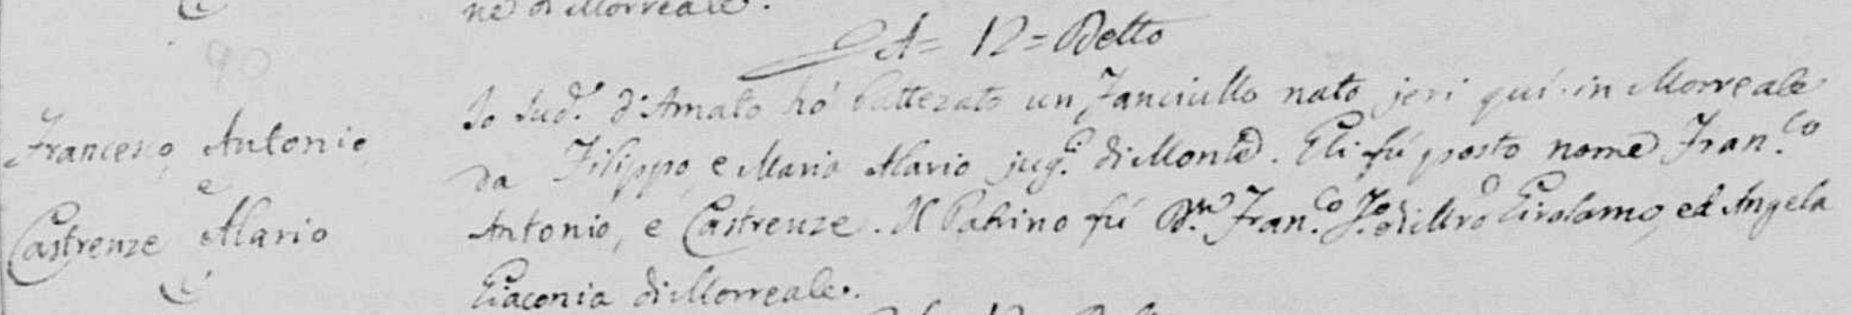 ne di Morreale.
A = 12 = Detto
90
Io sud.º d'Amato hò battezato un Fanciullo nato jeri quì in Morreale
Francesco, Antonio,
da Filippo, e Maria Alario jug.i di Monte. Gli fù posto nome Fran.co
e
Antonio, e Castrenze. Il Patrino fù D.n Fran.co di Mro Girolamo, ed Angela
Castrenze Alario
Giaconia di Morreale.